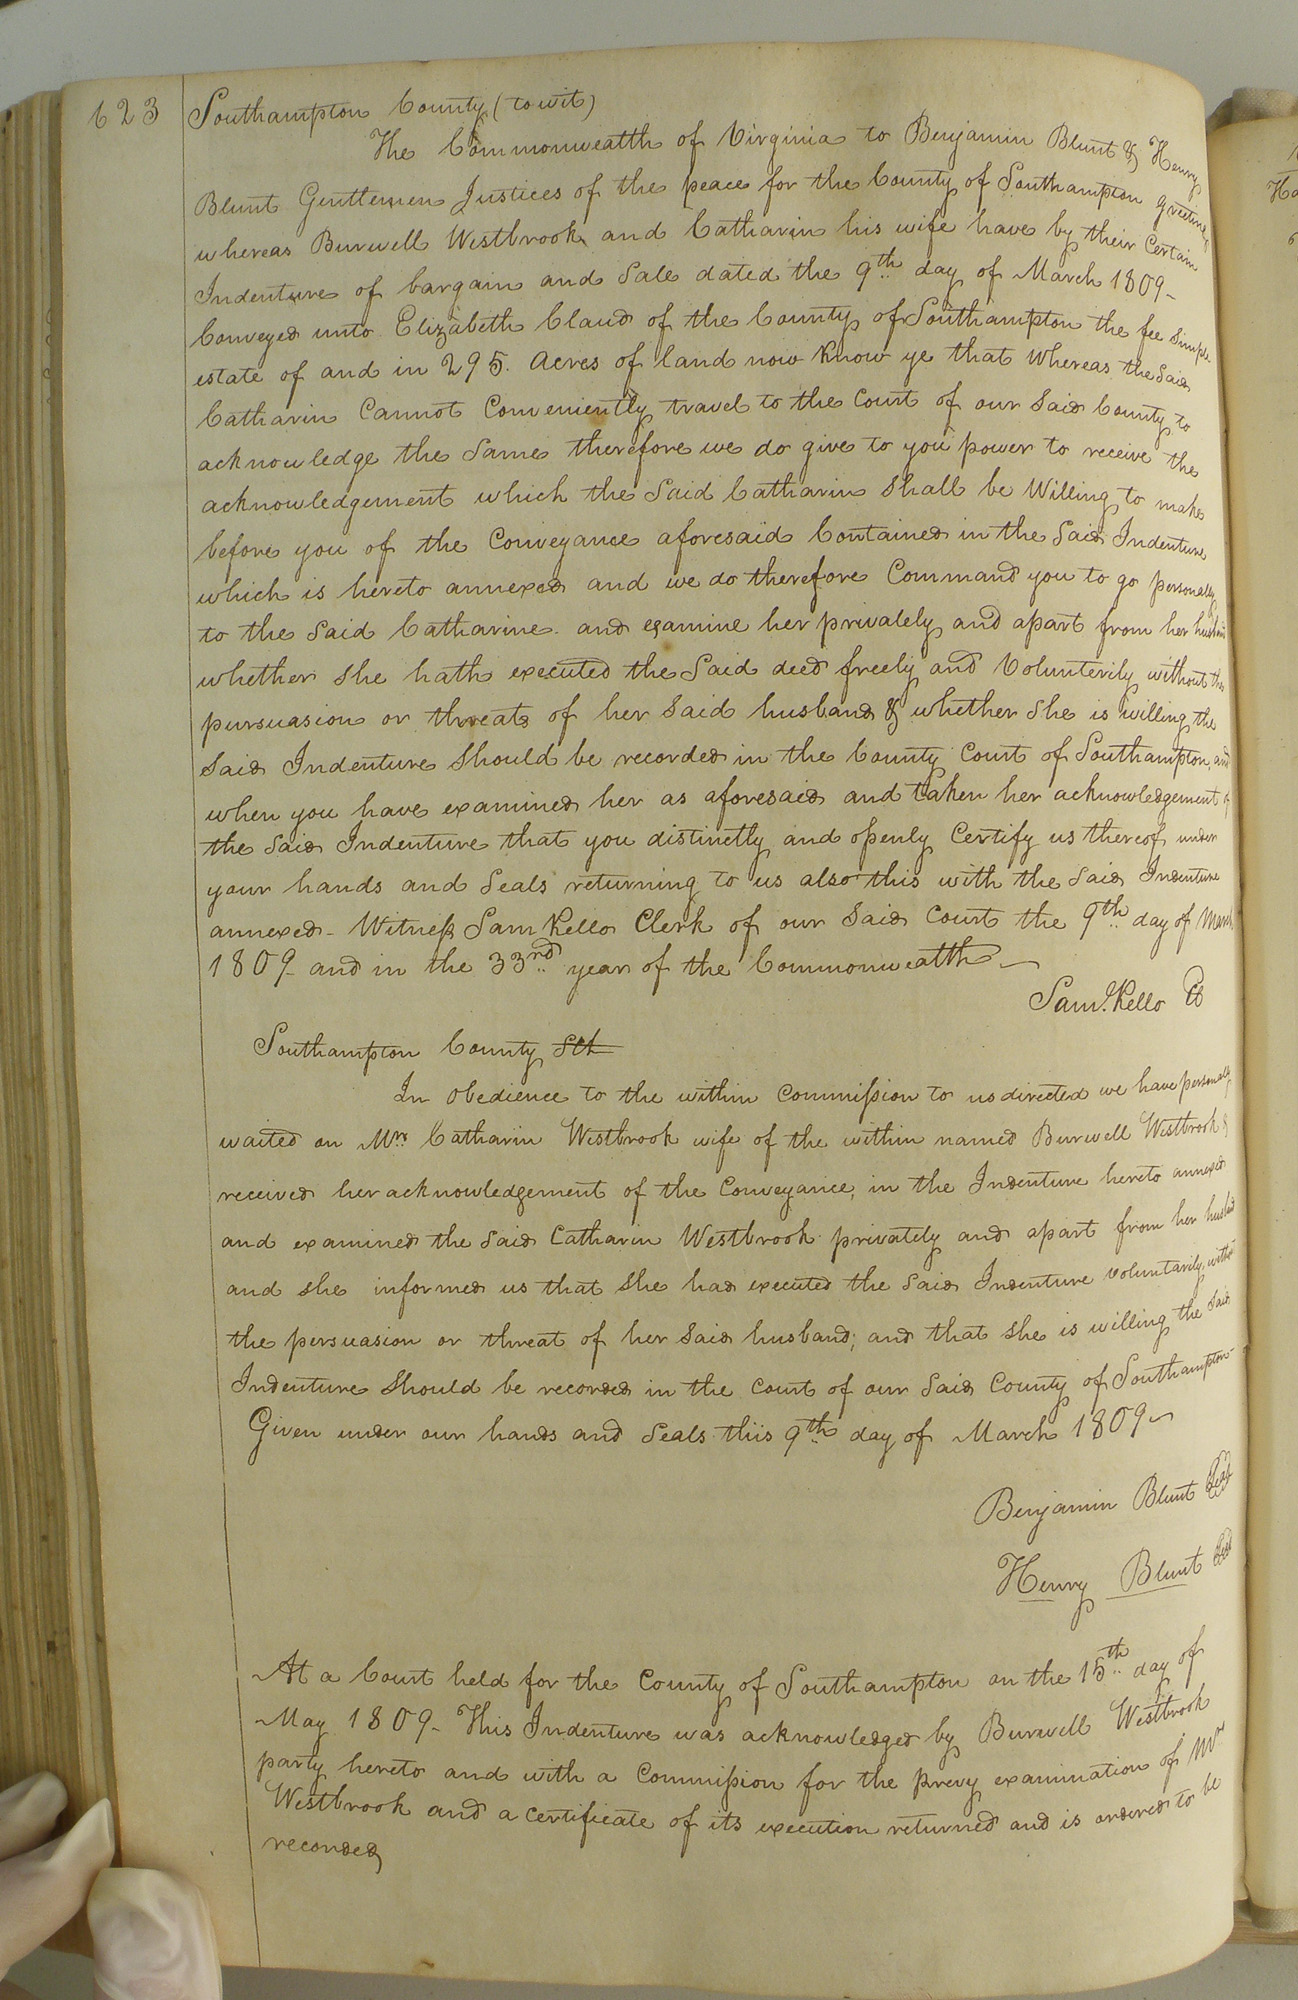 623
Southampton County (towit)
The Commonwealth of Virginia to Benjamin Blunt & Henry
Blunt Gentlemen Justices of the peace for the County of Southampton greeting
whereas Burwell Westbrook and Catharin his wife have by their Certain
Indenture of bargain and Sale dated the 9th day of March 1809-
Conveyed unto Elizabeth Claud of the County of Southampton the fee Simple
estate of and in 295. Acres of land now know ye that Whereas the Said
Catharin Cannot Conveniently travel to the Court of our Said County to
acknowledge the Same therefore we do give to you power to receive the
acknowledgement which the Said Catharin Shall be Willing to make
before you of the Conveyance aforesaid Contained in the Said Indenture
which is hereto annexed and we do therefore Command you to go personally
to the Said Catharine. and examine her privately and apart from her husband
whether She hath executed the Said deed freely and Volunterily without the
pursuasion or threats of her Said husband & whether She is willing the
Said Indenture Should be recorded in the County Court of Southampton, and
when you have examined her as aforesaid and taken her acknowledgement of
the Said Indenture that you distinctly and openly Certify us thereof under
your hands and Seals returning to us also this with the Said Indenture
annexed - Witness Sam Kello Clerk of our Said Court the 9th day of March
1809- and in the 33rd year of the Commonwealth
Saml. Kello
Southampton County Sct
In Obedience to the within Commission to us directed we have personally
waited on Mrs Catharin Westbrook wife of the within named Burwell Westbrook &
received her acknowledgement of the Conveyance, in the Indenture hereto annexed
and examined the Said Catharin Westbrook privately and apart from her husband
and She informed us that She had executed the Said Indenture voluntarily witho
the persuasion or threat of her Said husband; and that She is willing the Said
Indenture Should be recorded in the Court of our Said County of Southampton-
Given under our hands and Seals this 9th day of March 1809
Benjamin Blunt Seal
Henry Blunt Seal
At a Court held for the County of Southampton on the 15th day of
May 1809- This Indenture was acknowledged by Burwell Westbrook
party hereto and with a Commission for the prevy examination of Mrs
Westbrook and a certificate of its execution returned and is ordered to be
recorded